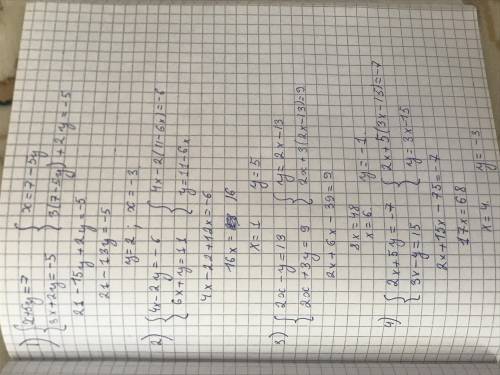 1) { x+5y=7 { x=7-5y
{ 3x+2y=-5 { 3(7-5y)+2y=-5
21-15y+2y=-5
21-13y=-5
y=2; x=-3
2) { 4x-2y=-6 { 4x-2(11-6x)=-6
{ 6x+y=11 { y=11-6x
4x-22+12x=-6
16x= 16
x=1 y=5
3) { 2x-y=13 { y=2x-13
{ 2x+3y=9 { 2x+3(2x-13)=9
2x+6x-39=9
8x=48
x=6 y=-1.
4) { 2x+5y=-7 { 2x+5(3x-15)=-7
{ 3x-y=15 { y=3x-15
2x+15x-75=-7
17x=68
x=4. y=-3